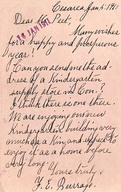 Cesarea Jan 5, 1911
Dear Mr. Peet,
Many wishes
for a happy and prosperous
year!
Can you send me the ad-
dress of a Kindergarten
supply store in Con.?
I think there is one there.
We are enjoying our new
Kindergarten building very
much as a Kind. and expect to
enjoy it as a home before
very long.
Yours truly,
F. E. Burrage.